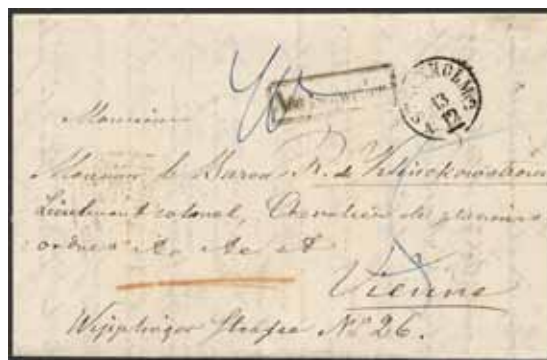 STOCKHOLM
13
12
Monsieur
Monsieur le Baron R. de
Lieutenant colonel, Chevalier de plusieurs
ordres &c. &c. &c.
Vienne
Wipplinger Strasse No 26.